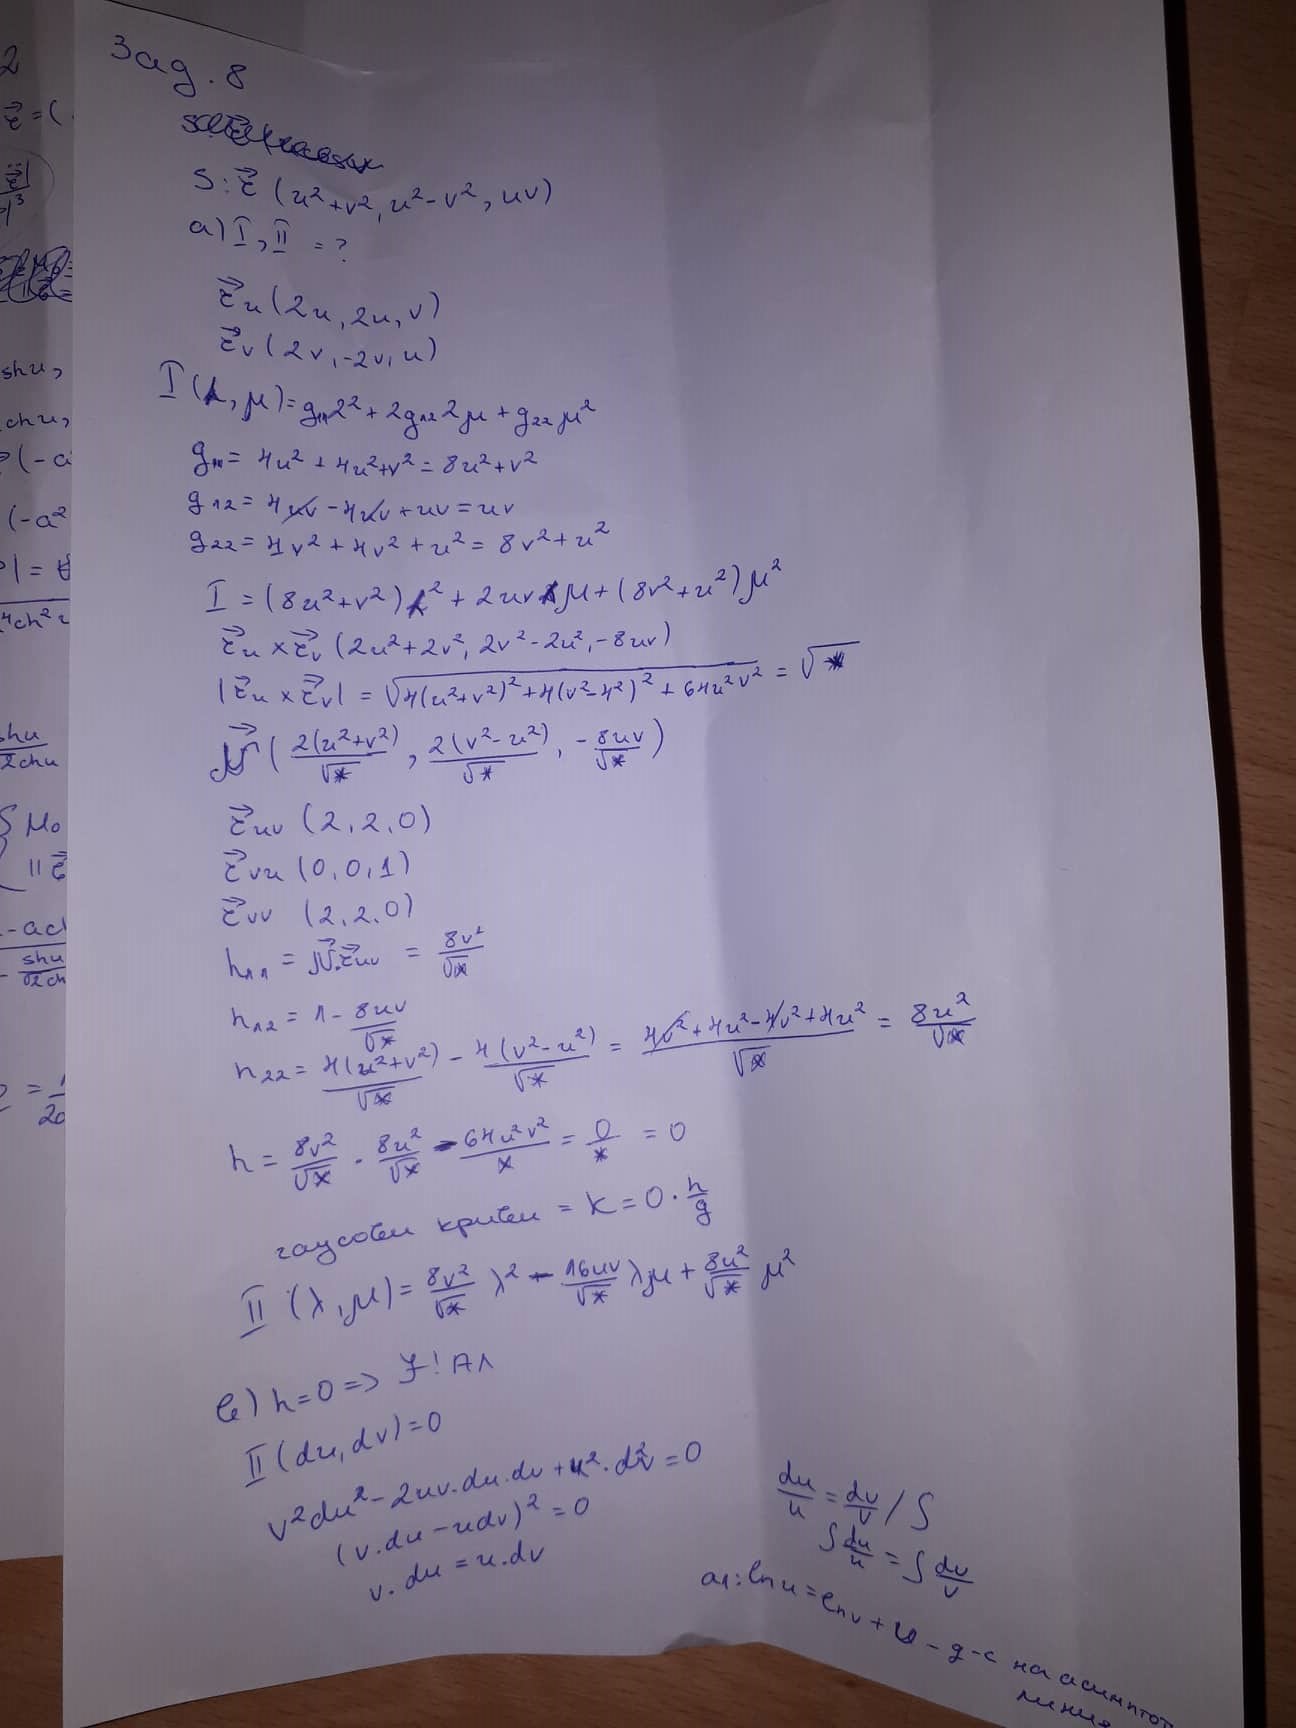 Зад. 8
S: r⃗ (u²+v², u²-v², uv)
а) I, II = ?
r⃗u (2u, 2u, v)
r⃗v (2v, -2v, u)
I (λ, μ) = g₁₁λ² + 2g₁₂λμ + g₂₂μ²
g₁₁ = 4u² + 4u²+v² = 8u²+v²
g₁₂ = 4uv - 4uv + uv = uv
g₂₂ = 4v² + 4v² + u² = 8v²+u²
I = (8u²+v²)λ² + 2uvλμ + (8v²+u²)μ²
r⃗u × r⃗v (2u²+2v², 2v²-2u², -8uv)
|r⃗u × r⃗v| = √4(u²+v²)²+4(v²-4²)²+64u²v² = √*
N⃗ (2(u²+v²)/√*, 2(v²-u²)/√*, -8uv/√*)
r⃗uu (2, 2, 0)
r⃗vu (0, 0, 1)
r⃗vv (2, 2, 0)
h₁₁ = N⃗.r⃗uu = 8v²/√*
h₁₂ = 1 - 8uv/√*
h₂₂ = 4(u²+v²)/√* - 4(v²-u²)/√* = 4v²+4u²-4v²+4u²/√* = 8u²/√*
h = 8v²/√* . 8u²/√* - 64u²v²/* = 0/* = 0
гаусови криви = K = 0 . h/g
II (λ, μ) = 8v²/√* λ² - 16uv/√* λμ + 8u²/√* μ²
в) h=0 => ∃! АЛ
II (du, dv) = 0
v²du² - 2uv.du.dv + u².dv² = 0
(v.du - udv)² = 0
v.du = u.dv
du/u = dv/v / ∫
∫du/u = ∫dv/v
ал: ln u = ln v + - д-е на асимптот
линия